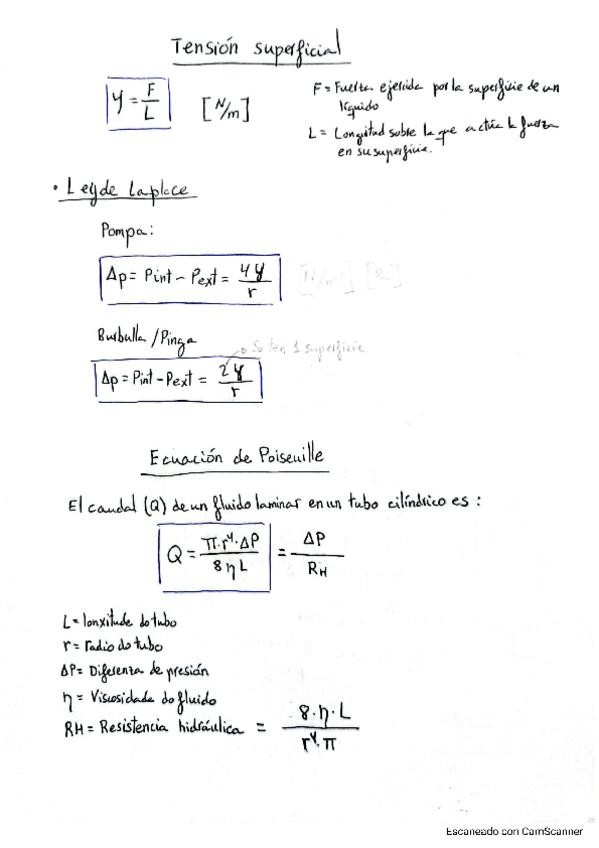 Tensión superficial
γ = F/L [N/m]
F = Fuerza ejercida por la superficie de un
líquido
L = Longitud sobre la que actúa la fuerza
en su superficie.
• Ley de Laplace
Pompa:
Δp = Pint - Pext = 4γ/r [N/m²] [Pa]
Burbulla / Pinga
So ten 1 superficie
Δp = Pint - Pext = 2γ/r
Ecuación de Poiseuille
El caudal (Q) de un fluido laminar en un tubo cilíndrico es:
Q = π·r⁴·ΔP / 8ηL = ΔP / RH
L = lonxitude do tubo
r = radio do tubo
ΔP = Diferenza de presión
η = Viscosidade do fluido
RH = Resistencia hidráulica = 8·η·L / r⁴·π
Escaneado con CamScanner